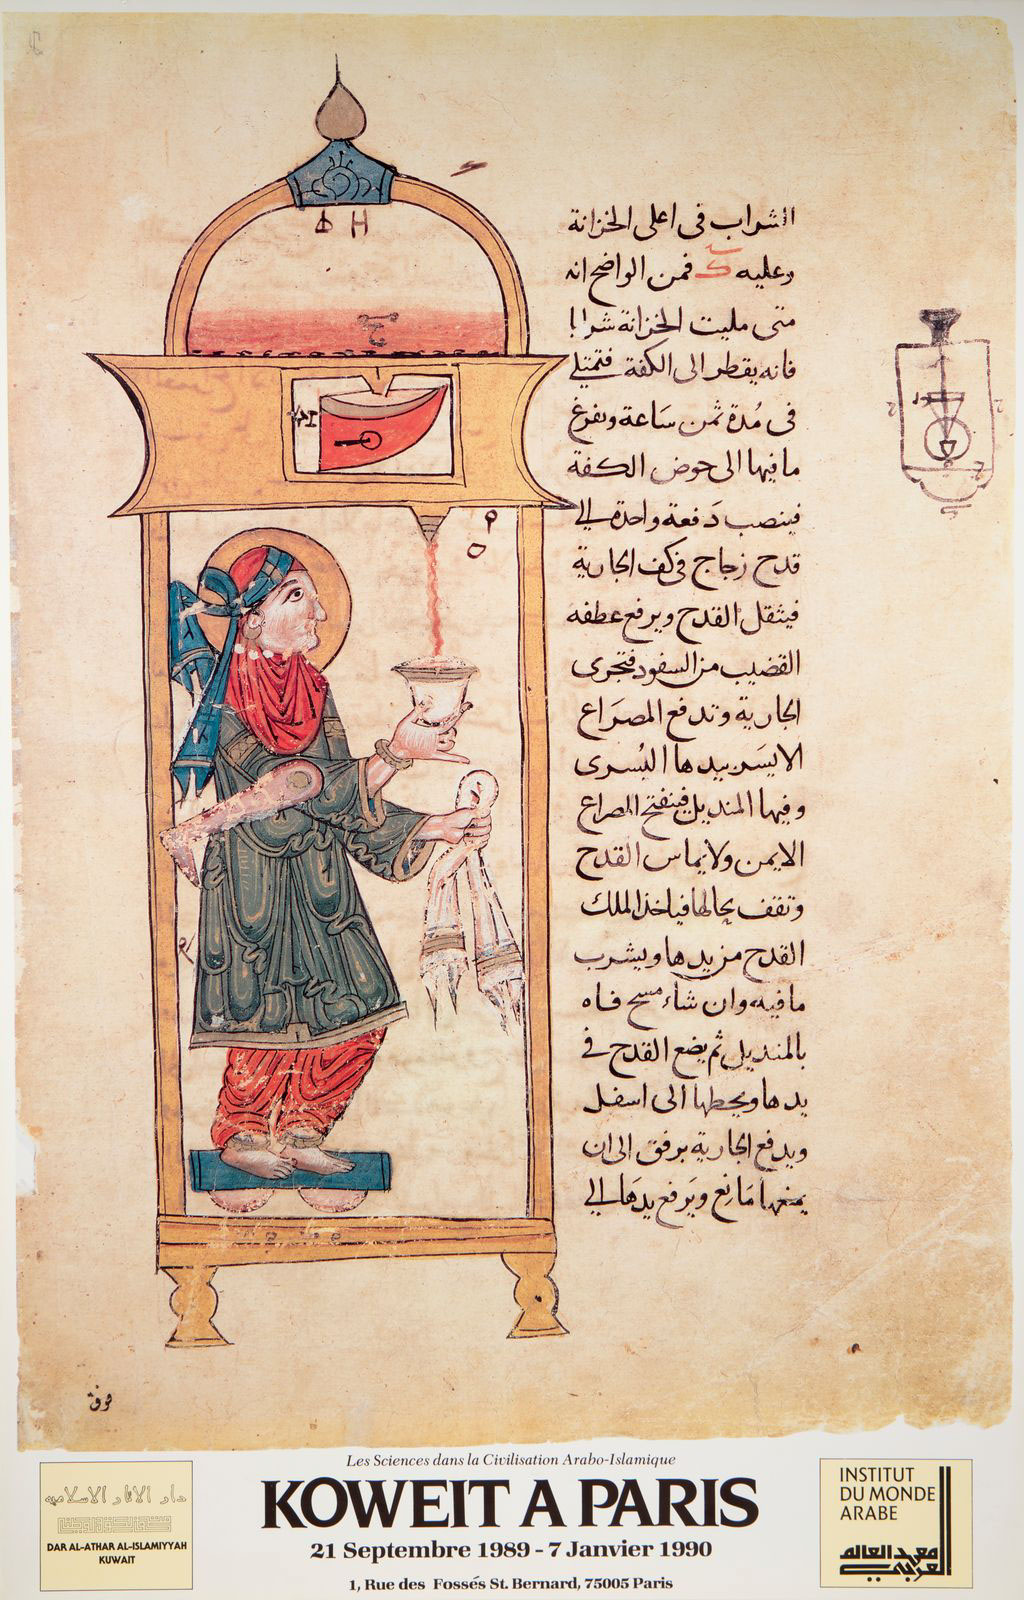 الشراب فى اعلى الخزانة
وعليه كـ فمن الواضح انه
متى مليت الخزانة شرابا
فانه يقطر الى الكفة فتمتلے
فى مُدة ثمن سَاعة وتفرغ
ما فيها الى حوض الكفة
فينصب دَفعة واحدة الے
قدح زجاج فى كف الجارية
فيثقل القدح ويرفع عطفه
القضيب من السفود فتجرى
الجارية وتدفع المصرَاع
الايسَر بيدها اليُسرى
وفيها المنديل فينفتح المصراع
الايمن ولا يماس القدح
وتقف بحالها فياخذ الملك
القدح من يدها ويشرب
ما فيه وان شاء مسح فاه
بالمنديل ثم يضع القدح فے
يدها ويحطها الى اسفل
ويدفع الجارية برفق الى ان
يمنعها مَانع ويَرفع يدهَا الے
Les Sciences dans la Civilisation Arabo-Islamique
KOWEIT A PARIS
21 Septembre 1989 - 7 Janvier 1990
1, Rue des Fossés St. Bernard, 75005 Paris
دار الاثار الاسلاميه
DAR AL-ATHAR AL-ISLAMIYYAH
KUWAIT
INSTITUT
DU MONDE
ARABE
معهد العالم
العربي